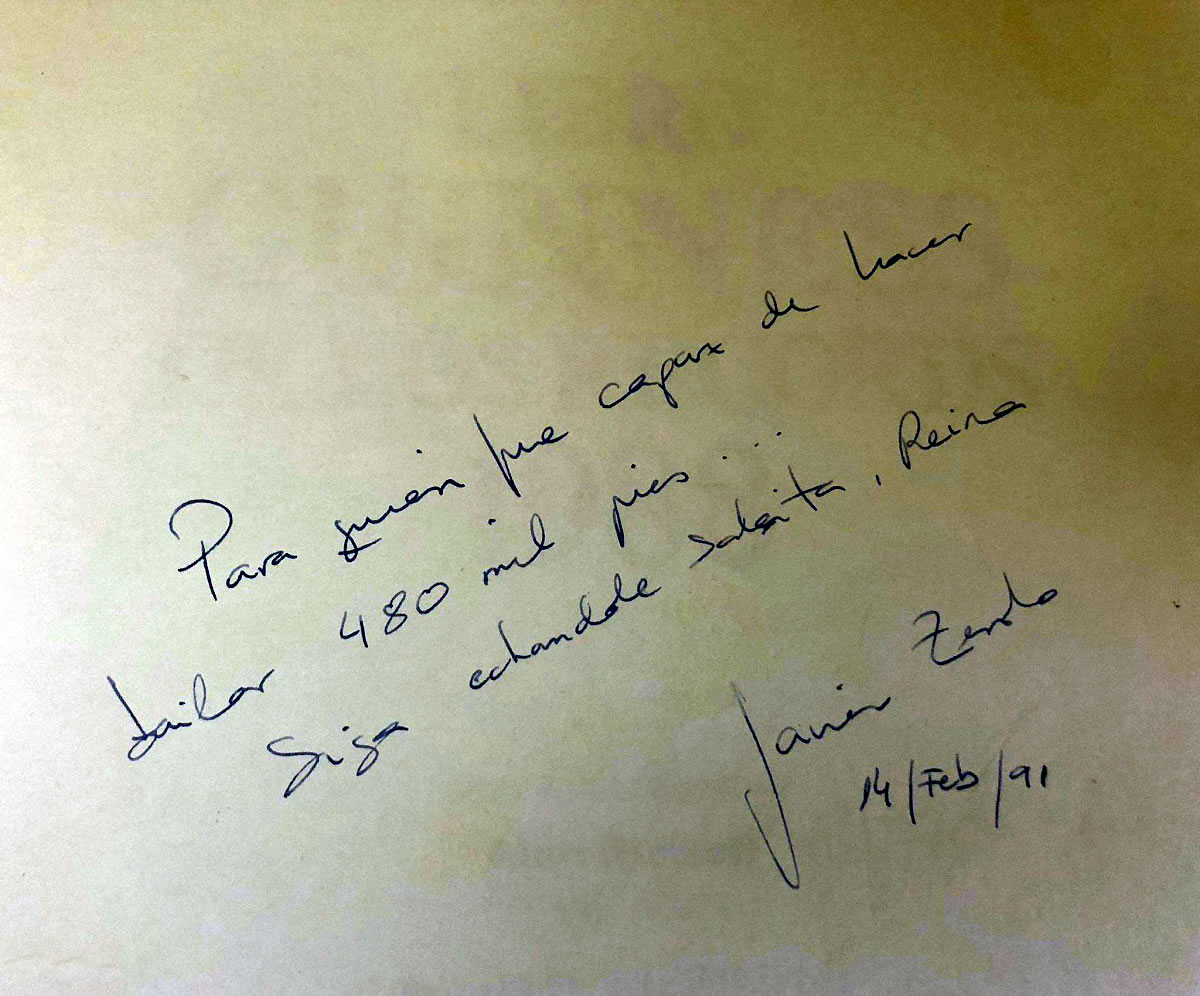 Para quien fue capax de hacer
bailar 480 mil pies....
Siga echandole salsita, Reina
Javier Zerolo
14/Feb/91